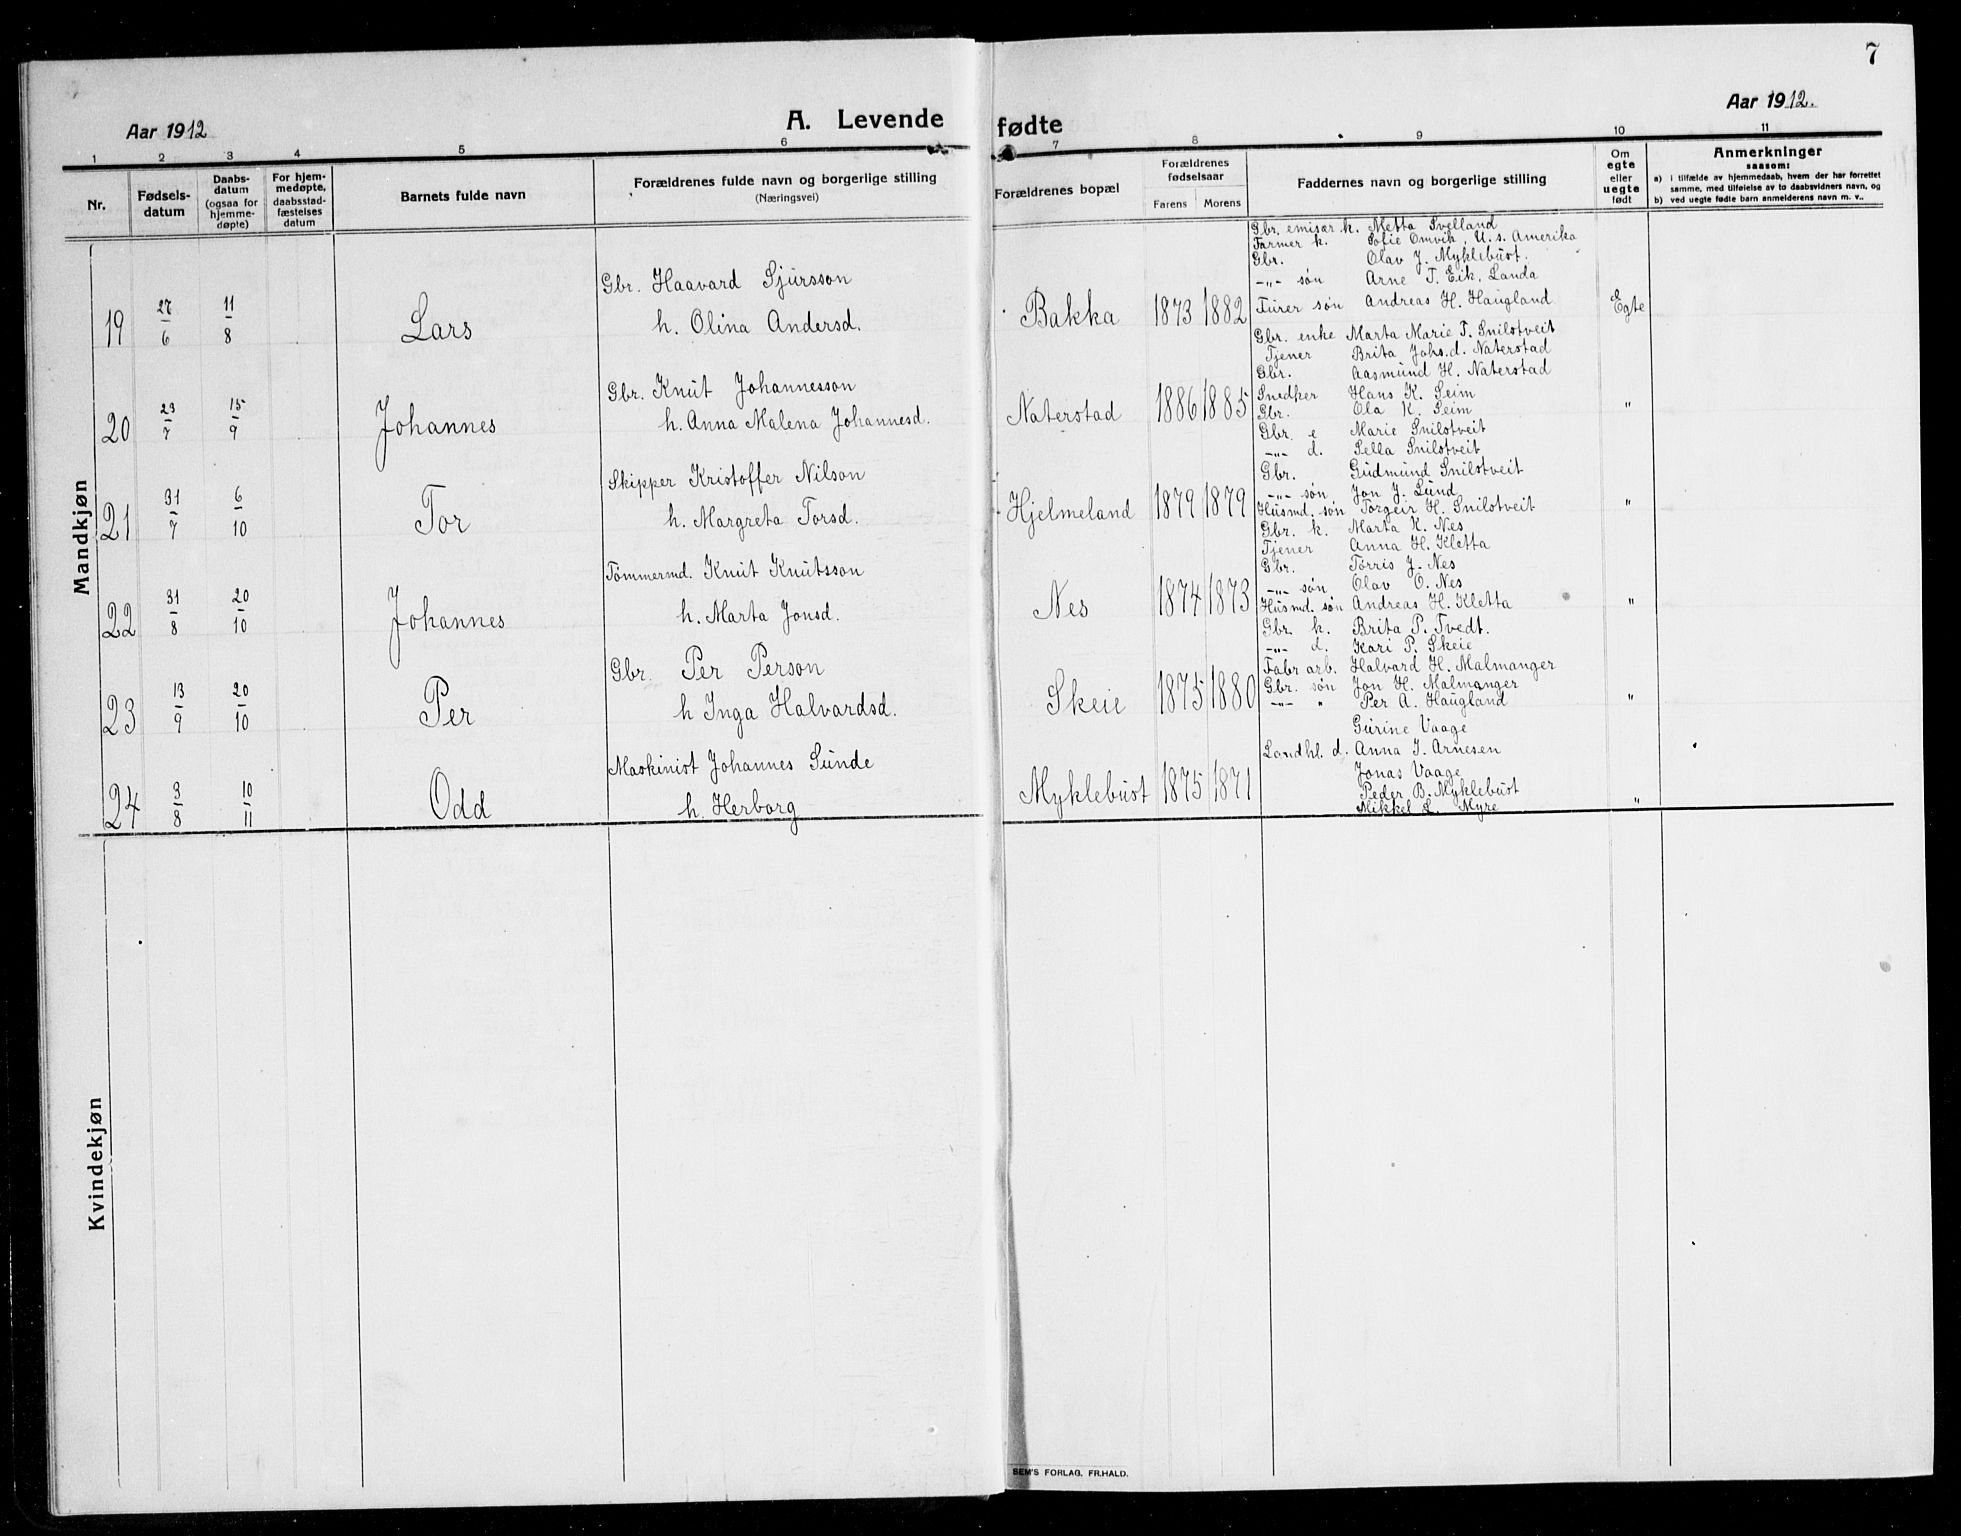 7
Aar 1912
A. Levende fødte
Aar 1912.
1 2 3 4 5 6 7 8 9 10 11
Nr.
Fødsels-
datum
Daabs-
datum
(ogsaa for
hjemme-
døpte)
For hjem-
medøpte,
daabsstad-
fæstelses
datum
Barnets fulde navn
Forældrenes fulde navn og borgerlige stilling
(Næringsvei)
Forældrenes bopæl
Forældrenes
fødselsaar
Farens Morens
Faddernes navn og borgerlige stilling
Om
egte
eller
uegte
født
Anmerkninger
saasom:
a) i tilfælde av hjemmedaab, hvem der har forrettet
samme, med tilføielse av to daabsvidners navn, og
b) ved uegte fødte barn anmelderens navn m. v..
Mandkjøn
19 27/6 11/8 Lars
Gbr. Haavard Sjursson
h. Olina Andersd.
Bakka 1873 1882
Gbr. emisær k. Metta Tvelland
Farmer k. Sofie Omvik, U.s. Amerika
Gbr. Olav J. Myklebust.
-"- søn Arne T. Eik, Landa
Furer søn Andreas H. Haugland
Egte
20 23/7 15/9 Johannes
Gbr. Knut Johannesson
h. Anna Malena Johannesd.
Naterstad 1886 1885
Gbr. enke Marta Marie T. Snilstveit
Tjener Brita Johs.d. Naterstad
Gbr. Aasmund H. Naterstad
Snedker Hans K. Seim
Gbr. Ola K. Seim
"
21 31/7 6/10 Tor
Skipper Kristoffer Nilson
h. Margreta Torsd.
Hjelmeland 1879 1879
Gbr. e Marie Snilstveit
-"- d. Sella Snilstveit
Gbr. Gudmund Snilstveit
-"- søn Jon J. Lund
Husmd. søn Torgeir H. Snilstveit
"
22 31/8 20/10 Johannes
Tømmermd. Knut Knutsson
h. Marta Jonsd.
Nes 1874 1873
Gbr. k. Marta K. Nes
Tjener Anna H. Kletta
Gbr. Torris J. Nes
-"- søn Olav O. Nes
Husmd. søn Andreas H. Kletta
"
23 13/9 20/10 Per
Gbr. Per Person
h Inga Halvardsd.
Skeie 1875 1880
Gbr. k. Brita P. Tvedt.
-"- d. Kari P. Skeie
Fabr arb. Halvard H. Malmanger
Gbr. søn Jon H. Malmanger
-"- " Per A. Haugland
"
24 3/8 10/11 Odd
Maskinist Johannes Sunde
h. Herborg
Myklebust 1875 1871
Gurine Vaage
Landhl. d. Anna J. Arnesen
Jonas Vaage
Peder B. Myklebust
Mikkel L. Myre
"
Kvindekjøn
SEM'S FORLAG, FR.HALD.